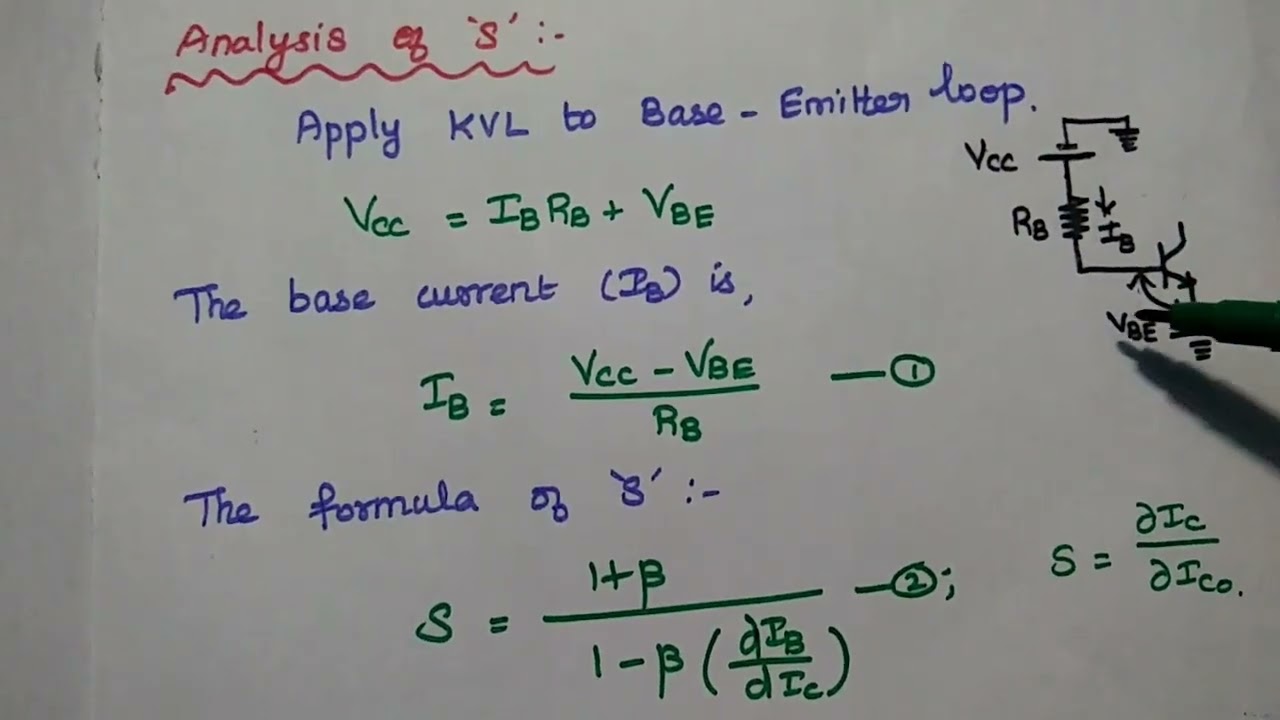 Analysis of 'S' :-
Apply KVL to Base - Emitter loop.
VCC = IB RB + VBE
The base current (IB) is,
IB = VCC - VBE / RB —①
The formula of 'S' :-
S = 1+β / 1-β (dIB/dIC) —②; S = ∂IC / ∂ICO.
VCC
RB
IB
VBE